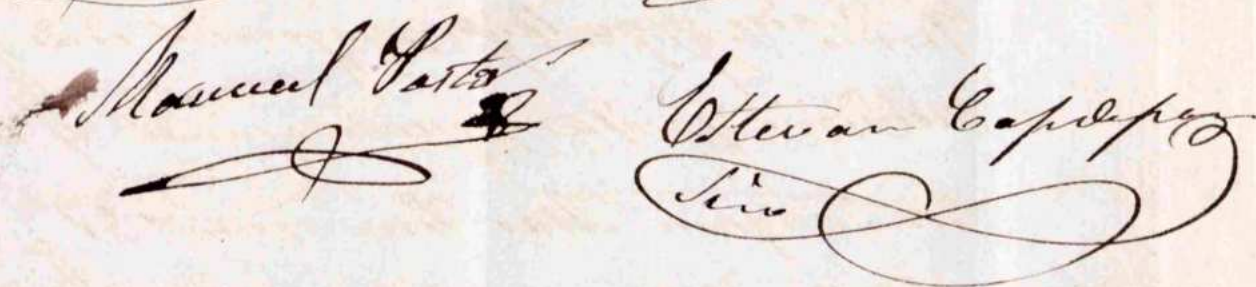 Manuel Pastor
Estevan Capdepon
Siro